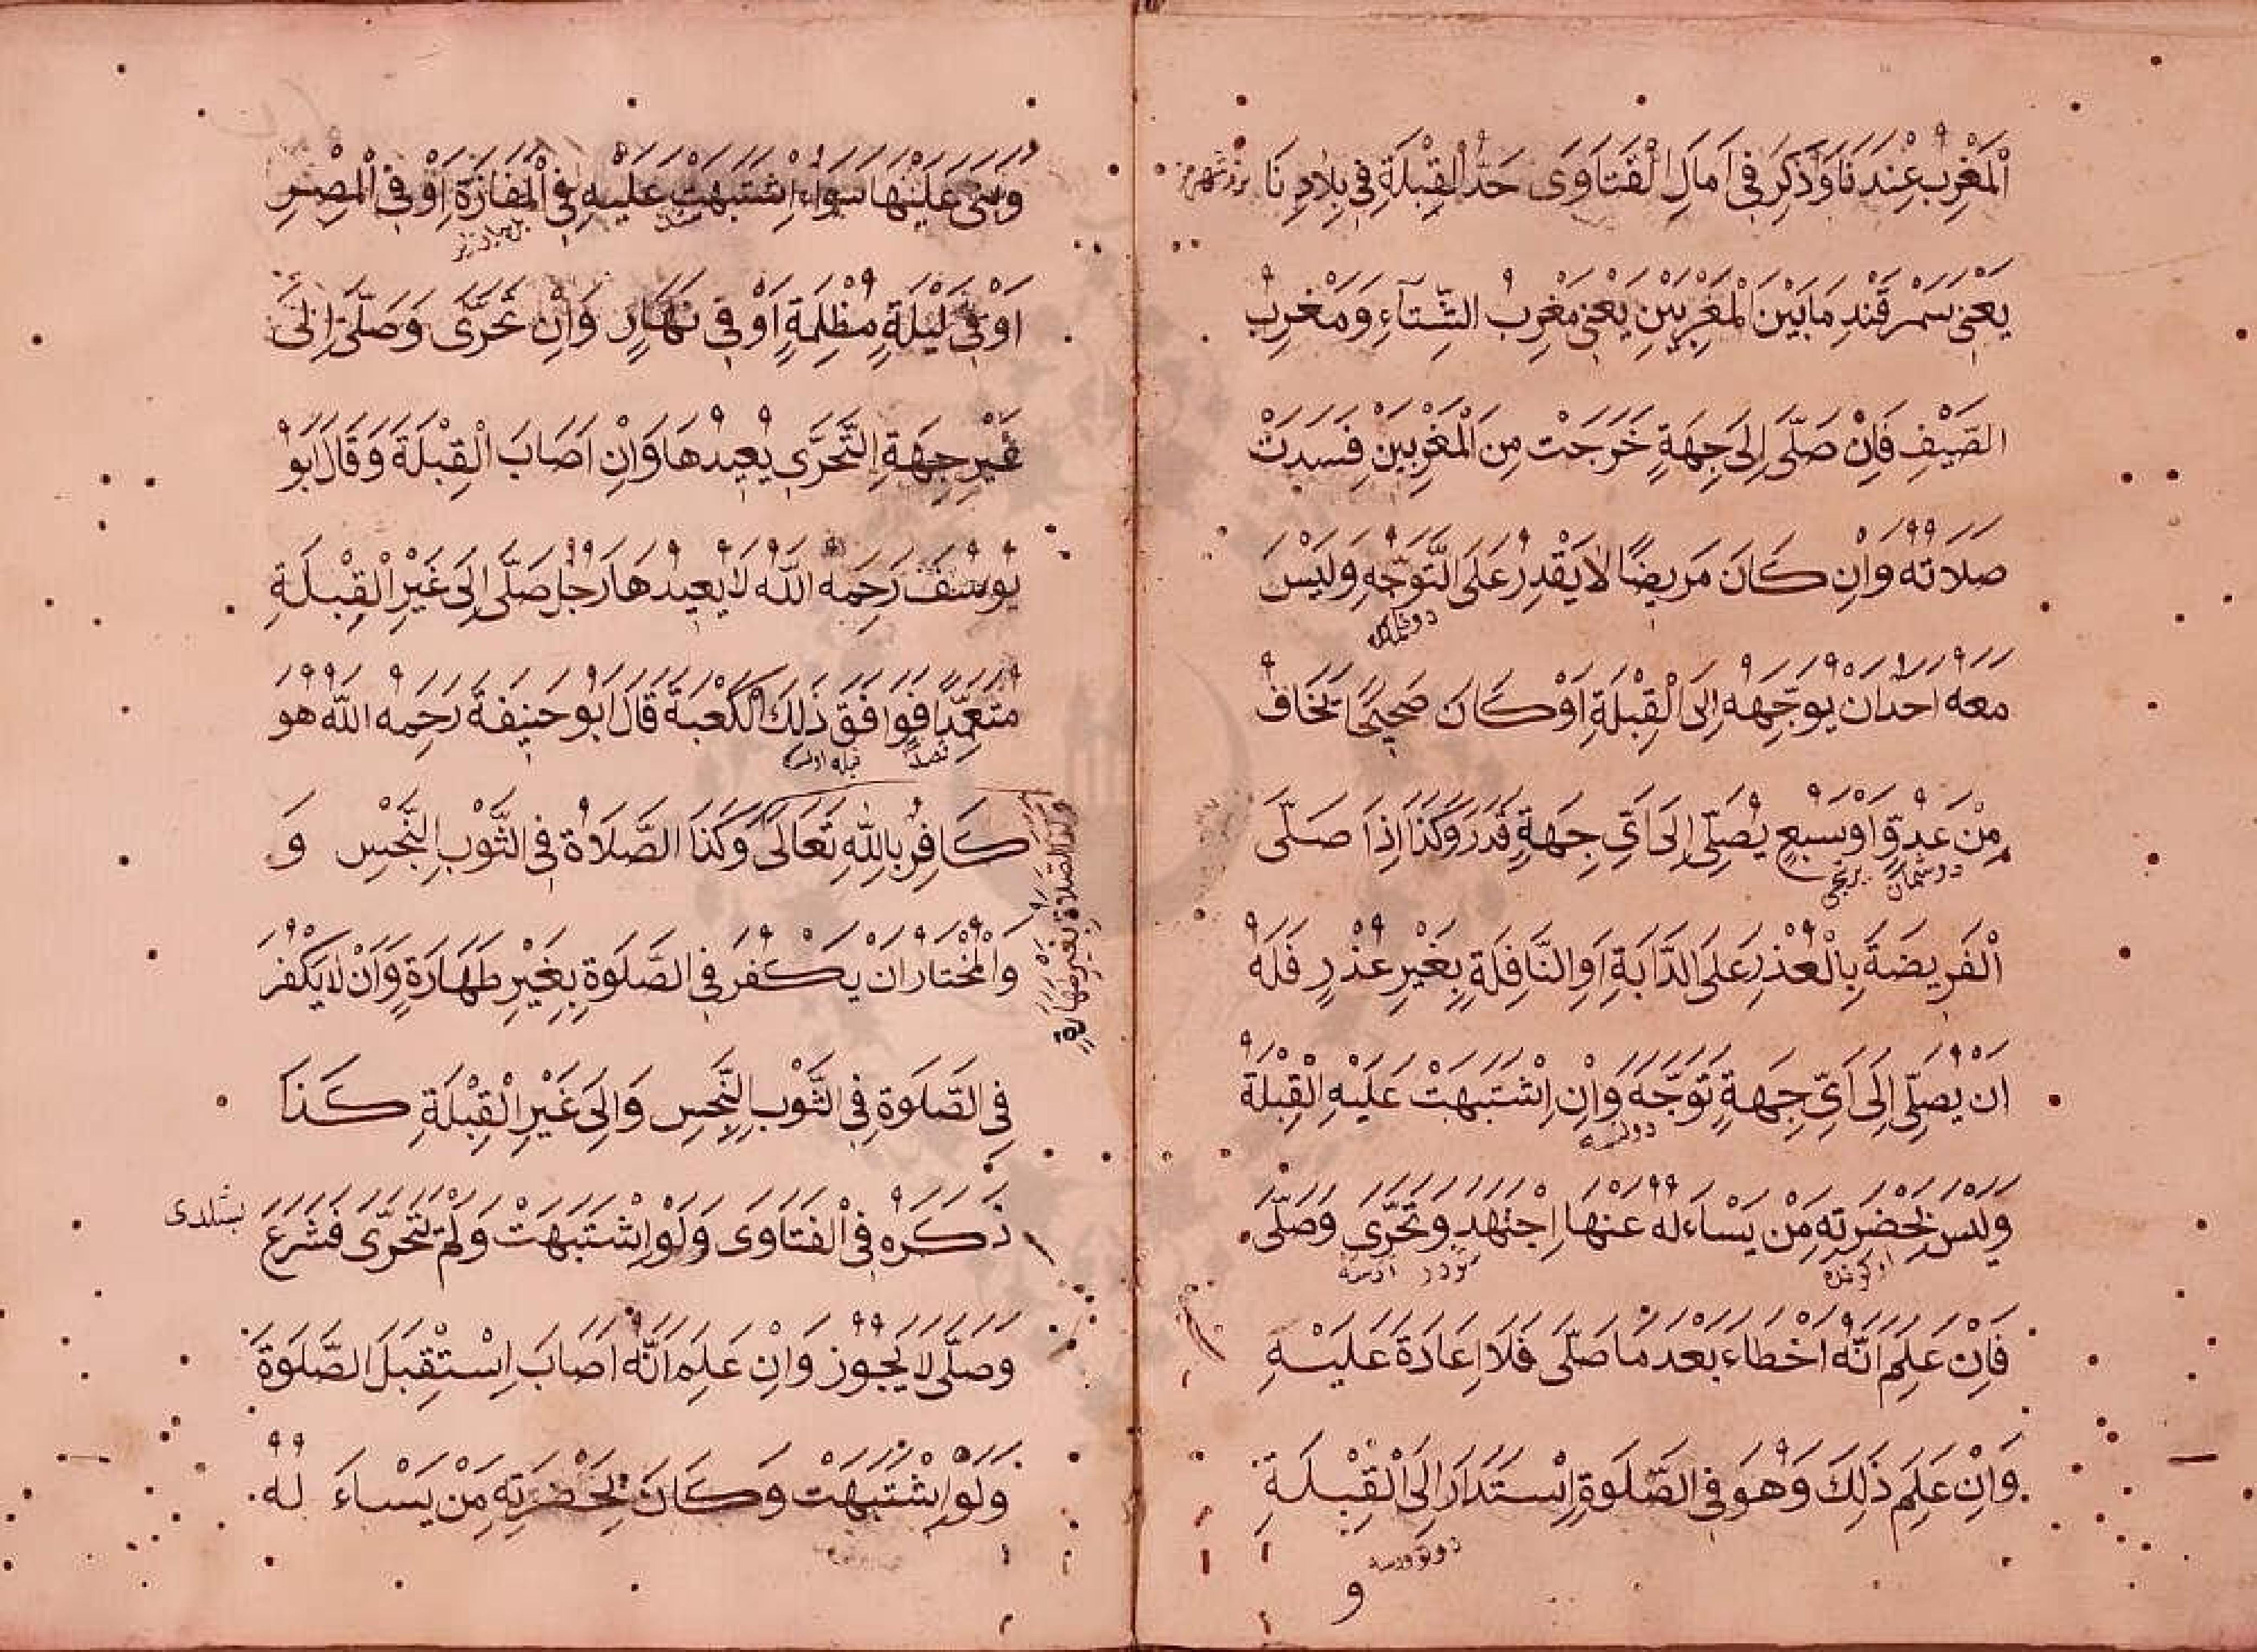 اَلْمَغْرِبُ عِنْدَنَا وَذُكِرَ فِي اَمَالِ الْفَتَاوَى حَدُّ الْقِبْلَةِ فِي بِلَادِنَا
يَعْنِي سَمَرْقَنْدِ مَابَيْنَ الْمَغْرِبَيْنِ يَعْنِي مَغْرِبُ الشِّتَآءِ وَمَغْرِبُ
الصَّيْفِ فَاِنْ صَلَّى اِلَى جِهَةٍ خَرَجَتْ مِنَ الْمَغْرِبَيْنِ فَسَدَتْ
صَلَاتُهُ وَاِنْ كَانَ مَرِيضًا لَا يَقْدِرُ عَلَى التَّوَجُّهِ وَلَيْسَ
مَعَهُ اَحَدٌ اَنْ يُوَجِّهَهُ اِلَى الْقِبْلَةِ اَوْ كَانَ صَحِيحًا يَخَافُ
مِنْ عَدُوٍّ اَوْ سَبُعٍ يُصَلِّي اِلَى اَيِّ جِهَةٍ قَدَرَ وَكَذَا اِذَا صَلَّى
دوشمان يرتجى
اَلْفَرِيضَةَ بِالْعُذْرِ عَلَى الدَّابَّةِ اَوِ النَّافِلَةِ بِغَيْرِ عُذْرٍ فَلَهُ
اَنْ يُصَلِّي اِلَى اَيِّ جِهَةٍ تَوَجَّهَ وَاِنِ اشْتَبَهَتْ عَلَيْهِ الْقِبْلَةُ
وَلَيْسَ بِحَضْرَتِهِ مَنْ يَسْاءَلُهُ عَنْهَا اِجْتَهَدَ وَتَحَرَّى وَصَلَّى
فَاِنْ عَلِمَ اَنَّهُ اَخْطَاءَ بَعْدَ مَا صَلَّى فَلَا اِعَادَةَ عَلَيْهِ
وَاِنْ عَلِمَ ذَلِكَ وَهُوَ فِي الصَّلَوةِ اِسْتَدَارَ اِلَى الْقِبْلَةِ
و
وَبَنَى عَلَيْهَا سَوَاءٌ اِشْتَبَهَتْ عَلَيْهِ فِي الْمَفَازَةِ اَوْ فِي الْمِصْرِ
اَوْ فِي لَيْلَةٍ مُظْلِمَةٍ اَوْ فِي نَهَارٍ وَاِنْ تَحَرَّى وَصَلَّى اِلَى
غَيْرِ جِهَةِ التَّحَرِّي يُعِيدُهَا وَاِنْ اَصَابَ الْقِبْلَةَ وَقَالَ اَبُو
يُوسُفَ رَحِمَهُ اللّٰهُ لَا يُعِيدُهَا رَجُلٌ صَلَّى اِلَى غَيْرِ الْقِبْلَةِ
مُتَعَمِّدًا فَوَافَقَ ذَلِكَ الْكَعْبَةَ قَالَ اَبُو حَنِيفَةَ رَحِمَهُ اللّٰهُ هُوَ
قصدًا
كَافِرٌ بِاللّٰهِ تَعَالَى وَكَذَا الصَّلَاةُ فِي الثَّوْبِ النَّجِسِ وَ
وَكَذَا الصَّلَاةُ بِغَيْرِ طَهَارَةٍ
وَالْمُخْتَارُ اَنْ يَكْفُرَ فِي الصَّلَوةِ بِغَيْرِ طَهَارَةٍ وَاَنْ لَا يَكْفُرَ
فِي الصَّلَوةِ فِي الثَّوْبِ النَّجِسِ وَاِلَى غَيْرِ الْقِبْلَةِ كَذَا
ذَكَرَهُ فِي الْفَتَاوَى وَلَوِ اشْتَبَهَتْ وَلَمْ يَتَحَرَّى فَشَرَعَ
بشلدى
وَصَلَّى لَا يَجُوزُ وَاِنْ عَلِمَ اَنَّهُ اَصَابَ اِسْتَقْبَلَ الصَّلَوةَ
وَلَوِ اشْتَبَهَتْ وَكَانَ بِحَضْرَتِهِ مَنْ يَسْاءَلُهُ